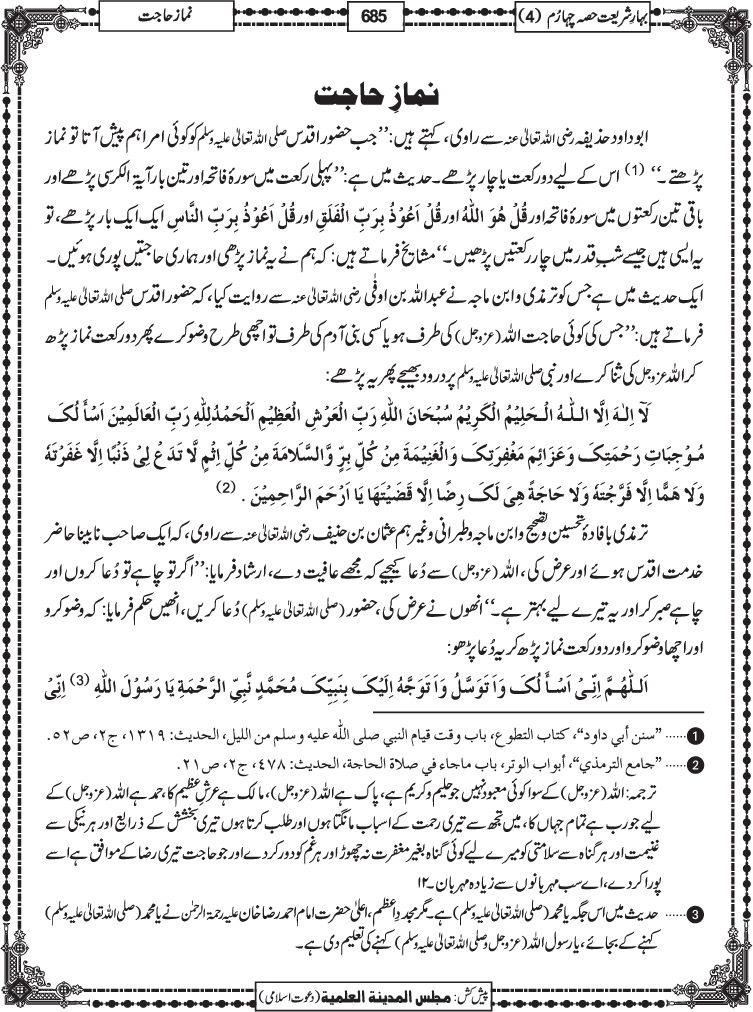 بہارِ شریعت حصہ چہارُم (4)
685
نماز حاجت
نمازِ حاجت
ابوداود حذیفہ رضی اللہ تعالیٰ عنہ سے راوی، کہتے ہیں: ’’جب حضور اقدس صلی اللہ تعالیٰ علیہ وسلم کو کوئی امر اہم پیش آتا تو نماز
پڑھتے۔‘‘ (1) اس کے لیے دو رکعت یا چار پڑھے۔ حدیث میں ہے: ’’پہلی رکعت میں سورۂ فاتحہ اور تین بار آیۃ الکرسی پڑھے اور
باقی تین رکعتوں میں سورۂ فاتحہ اور قُلْ هُوَ اللّٰهُ اور قُلْ اَعُوْذُ بِرَبِّ الْفَلَقِ اور قُلْ اَعُوْذُ بِرَبِّ النَّاسِ ایک ایک بار پڑھے، تو
یہ ایسی ہیں جیسے شبِ قدر میں چار رکعتیں پڑھیں۔‘‘ مشایخ فرماتے ہیں: کہ ہم نے یہ نماز پڑھی اور ہماری حاجتیں پوری ہوئیں۔
ایک حدیث میں ہے جس کو ترمذی و ابن ماجہ نے عبداللہ بن اوفٰی رضی اللہ تعالیٰ عنہ سے روایت کیا، کہ حضور اقدس صلی اللہ تعالیٰ علیہ وسلم
فرماتے ہیں: ’’جس کی کوئی حاجت اللہ (عزوجل) کی طرف ہو یا کسی بنی آدم کی طرف تو اچھی طرح وضو کرے پھر دو رکعت نماز پڑھ
کر اللہ عزوجل کی ثنا کرے اور نبی صلی اللہ تعالیٰ علیہ وسلم پر درود بھیجے پھر یہ پڑھے:
لَآ اِلٰہَ اِلَّا اللّٰہُ الْحَلِیْمُ الْکَرِیْمُ سُبْحَانَ اللّٰہِ رَبِّ الْعَرْشِ الْعَظِیْمِ اَلْحَمْدُلِلّٰہِ رَبِّ الْعَالَمِیْنَ اَسْأَ لُکَ
مُوْجِبَاتِ رَحْمَتِکَ وَعَزَائِمَ مَغْفِرَتِکَ وَالْغَنِیْمَۃَ مِنْ کُلِّ بِرٍّ وَّالسَّلَامَۃَ مِنْ کُلِّ اِثْمٍ لَّا تَدَعْ لِیْ ذَنْبًا اِلَّا غَفَرْتَہٗ
وَلَا ھَمًّا اِلَّا فَرَّجْتَہٗ وَلَا حَاجَۃً ھِیَ لَکَ رِضًا اِلَّا قَضَیْتَھَا یَا اَرْحَمَ الرَّاحِمِیْنَ . (2)
ترمذی بافادۂ تحسین و تصحیح و ابن ماجہ و طبرانی وغیرہم عثمان بن حنیف رضی اللہ تعالیٰ عنہ سے راوی، کہ ایک صاحب نابینا حاضر
خدمت اقدس ہوئے اور عرض کی، اللہ (عزوجل) سے دُعا کیجیے کہ مجھے عافیت دے، ارشاد فرمایا: ’’اگر تو چاہے تو دُعا کروں اور
چاہے صبر کر اور یہ تیرے لیے بہتر ہے۔‘‘ انھوں نے عرض کی، حضور (صلی اللہ تعالیٰ علیہ وسلم) دُعا کریں، انھیں حکم فرمایا: کہ وضو کرو
اور اچھا وضو کرو اور دو رکعت نماز پڑھ کر یہ دُعا پڑھو:
اَللّٰھُمَّ اِنِّیْ اَسْأَ لُکَ وَاَ تَوَسَّلُ وَاَ تَوَجَّہُ اِلَیْکَ بِنَبِیِّکَ مُحَمَّدٍ نَّبِیِّ الرَّحْمَۃِ یَا رَسُوْلَ اللّٰہِ (3) اِنِّیْ
❶ ...... ”سنن أبي داود“، كتاب التطوع، باب وقت قيام النبي صلى الله عليه وسلم من الليل، الحديث: ١٣١٩، ج٢، ص٥٢.
❷ ...... ”جامع الترمذي“، أبواب الوتر، باب ماجاء في صلاة الحاجة، الحديث: ٤٧٨، ج٢، ص٢١.
ترجمہ: اللہ (عزوجل) کے سوا کوئی معبود نہیں جو حلیم و کریم ہے، پاک ہے اللہ (عزوجل)، مالک ہے عرشِ عظیم کا، حمد ہے اللہ (عزوجل) کے
لیے جو رب ہے تمام جہاں کا، میں تجھ سے تیری رحمت کے اسباب مانگتا ہوں اور طلب کرتا ہوں تیری بخشش کے ذرائع اور ہر نیکی سے
غنیمت اور ہر گناہ سے سلامتی کو میرے لیے کوئی گناہ بغیر مغفرت نہ چھوڑ اور ہر غم کو دور کر دے اور جو حاجت تیری رضا کے موافق ہے اسے
پورا کر دے، اے سب مہربانوں سے زیادہ مہربان۔۱۲
❸ ...... حدیث میں اس جگہ یا محمد (صلی اللہ تعالیٰ علیہ وسلم) ہے۔ مگر مجددِ اعظم، اعلیٰ حضرت امام احمد رضا خان علیہ رحمۃ الرحمٰن نے یا محمد (صلی اللہ تعالیٰ علیہ وسلم)
کہنے کے بجائے، یا رسول اللہ (عزوجل وصلی اللہ تعالیٰ علیہ وسلم) کہنے کی تعلیم دی ہے۔
پیش کش: مجلس المدینۃ العلمیۃ (دعوت اسلامی)